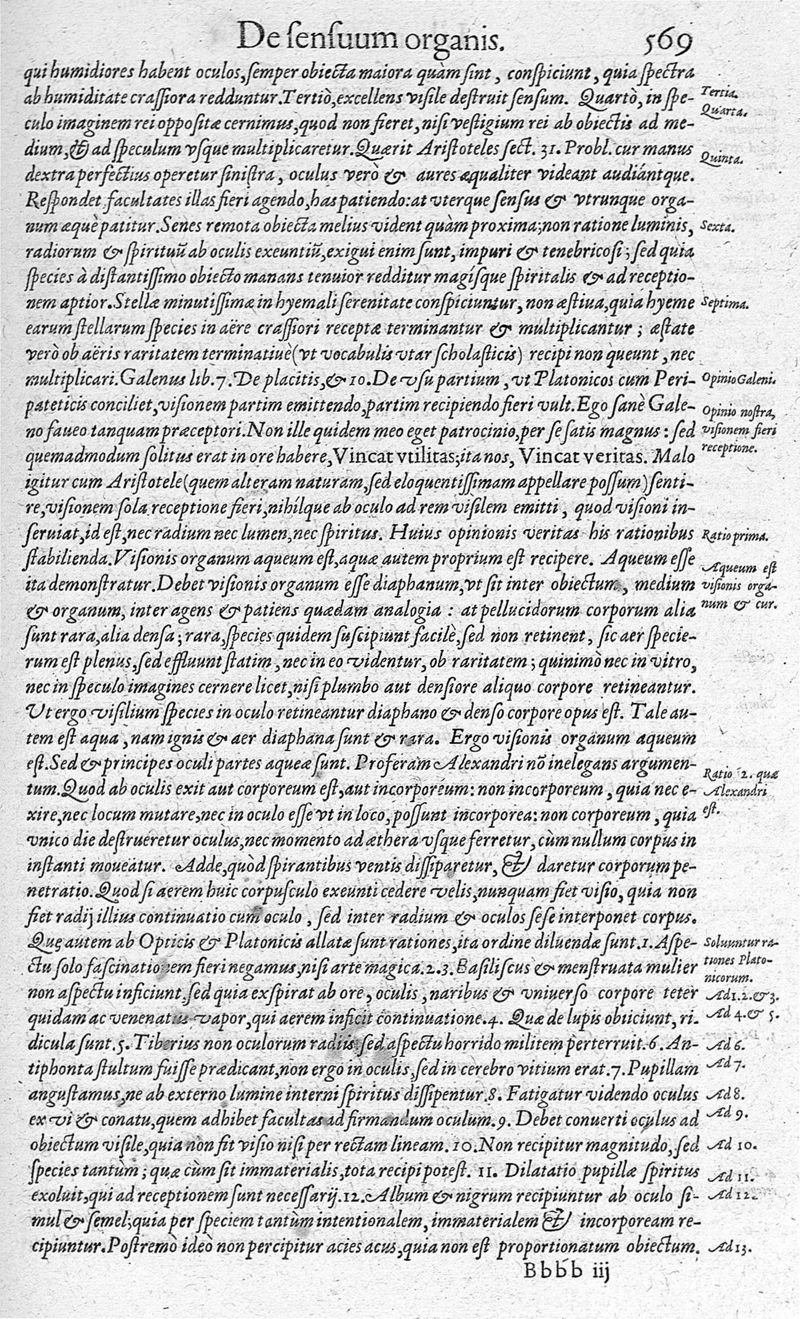 De sensuum organis. 569
qui humidiores habent oculos, semper obiecta maiora quàm sint, conspiciunt, quia spectra
ab humiditate crassiora redduntur. Tertiò, excellens visile destruit sensum. Quartò, in spe-
Tertia.
Quarta.
culo imaginem rei oppositæ cernimus, quod non fieret, nisi vestigium rei ab obiectis ad me-
dium, & ad speculum vsque multiplicaretur. Quærit Aristoteles sect. 31. Probl. cur manus
dextra perfectius operetur sinistra, oculus verò & aures æqualiter videant audiántque.
Quinta.
Respondet facultates illas fieri agendo, has patiendo: at vterque sensus & vtrunque orga-
num æquè patitur. Senes remota obiecta melius vident quàm proxima; non ratione luminis,
Sexta.
radiorum & spirituũ ab oculis exeuntiũ, exigui enim sunt, impuri & tenebricosi; sed quia
species à distantissimo obiecto manans tenuior redditur magísque spiritalis & ad receptio-
nem aptior. Stellæ minutissimæ in hyemali serenitate conspiciuntur, non æstiua, quia hyeme
Septima.
earum stellarum species in aëre crassiori receptæ terminantur & multiplicantur; æstate
verò ob aëris raritatem terminatiuè (vt vocabulis vtar scholasticis) recipi non queunt, nec
multiplicari. Galenus lib. 7. De placitis, & 10. De vsu partium, vt Platonicos cum Peri-
Opinio Galeni.
pateticis conciliet, visionem partim emittendo, partim recipiendo fieri vult. Ego sanè Gale-
no faueo tanquam præceptori. Non ille quidem meo eget patrocinio, per se satis magnus: sed
Opinio nostra,
visionem fieri
receptione.
quemadmodum solitus erat in ore habere, Vincat vtilitas; ita nos, Vincat veritas. Malo
igitur cum Aristotele (quem alteram naturam, sed eloquentissimam appellare possum) senti-
re, visionem sola receptione fieri, nihílque ab oculo ad rem visilem emitti, quod visioni in-
seruiat, id est, nec radium nec lumen, nec spiritus. Huius opinionis veritas his rationibus
Ratio prima.
stabilienda. Visionis organum aqueum est, aquæ autem proprium est recipere. Aqueum esse
ita demonstratur. Debet visionis organum esse diaphanum, vt sit inter obiectum, medium
Aqueum est
visionis orga-
num & cur.
& organum, inter agens & patiens quædam analogia: at pellucidorum corporum alia
sunt rara, alia densa; rara, species quidem suscipiunt facilè, sed non retinent, sic aer specie-
rum est plenus, sed effluunt statim, nec in eo videntur, ob raritatem; quinimò nec in vitro,
nec in speculo imagines cernere licet, nisi plumbo aut densiore aliquo corpore retineantur.
Vt ergo visilium species in oculo retineantur diaphano & denso corpore opus est. Tale au-
tem est aqua, nam ignis & aer diaphana sunt & rara. Ergo visionis organum aqueum
est. Sed & principes oculi partes aqueæ sunt. Proferam Alexandri nõ inelegans argumen-
tum. Quod ab oculis exit aut corporeum est, aut incorporeum: non incorporeum, quia nec e-
Ratio 2. quæ
Alexandri
est.
xire, nec locum mutare, nec in oculo esse vt in loco, possunt incorporea: non corporeum, quia
vnico die destrueretur oculus, nec momento ad æthera vsque ferretur, cùm nullum corpus in
instanti moueatur. Adde, quòd spirantibus ventis dissiparetur, & daretur corporum pe-
netratio. Quod si aerem huic corpusculo exeunti cedere velis, nunquam fiet visio, quia non
fiet radij illius continuatio cum oculo, sed inter radium & oculos sese interponet corpus.
Quę autem ab Opticis & Platonicis allatæ sunt rationes, ita ordine diluendæ sunt. 1. Aspe-
Soluuntur ra-
tiones Plato-
nicorum.
ctu solo fascinationem fieri negamus, nisi arte magica. 2. 3. Basiliscus & menstruata mulier
non aspectu inficiunt, sed quia exspirat ab ore, oculis, naribus & vniuerso corpore teter
Ad 1. 2. & 3.
quidam ac venenatus vapor, qui aerem inficit continuatione. 4. Quæ de lupis obiiciunt, ri-
Ad 4. & 5.
dicula sunt. 5. Tiberius non oculorum radiis, sed aspectu horrido militem perterruit. 6. An-
Ad 6.
tiphonta stultum fuisse prædicant, non ergo in oculis, sed in cerebro vitium erat. 7. Pupillam
Ad 7.
angustamus, ne ab externo lumine interni spiritus dissipentur. 8. Fatigatur videndo oculus
Ad 8.
ex vi & conatu, quem adhibet facultas ad firmandum oculum. 9. Debet conuerti oculus ad
Ad 9.
obiectum visile, quia non fit visio nisi per rectam lineam. 10. Non recipitur magnitudo, sed
Ad 10.
species tantùm; quæ cùm sit immaterialis, tota recipi potest. 11. Dilatatio pupillæ spiritus
Ad 11.
exoluit, qui ad receptionem sunt necessarij. 12. Album & nigrum recipiuntur ab oculo si-
Ad 12.
mul & semel; quia per speciem tantùm intentionalem, immaterialem & incorpoream re-
cipiuntur. Postremò ideò non percipitur acies acus, quia non est proportionatum obiectum.
Ad 13.
Bbbb iij